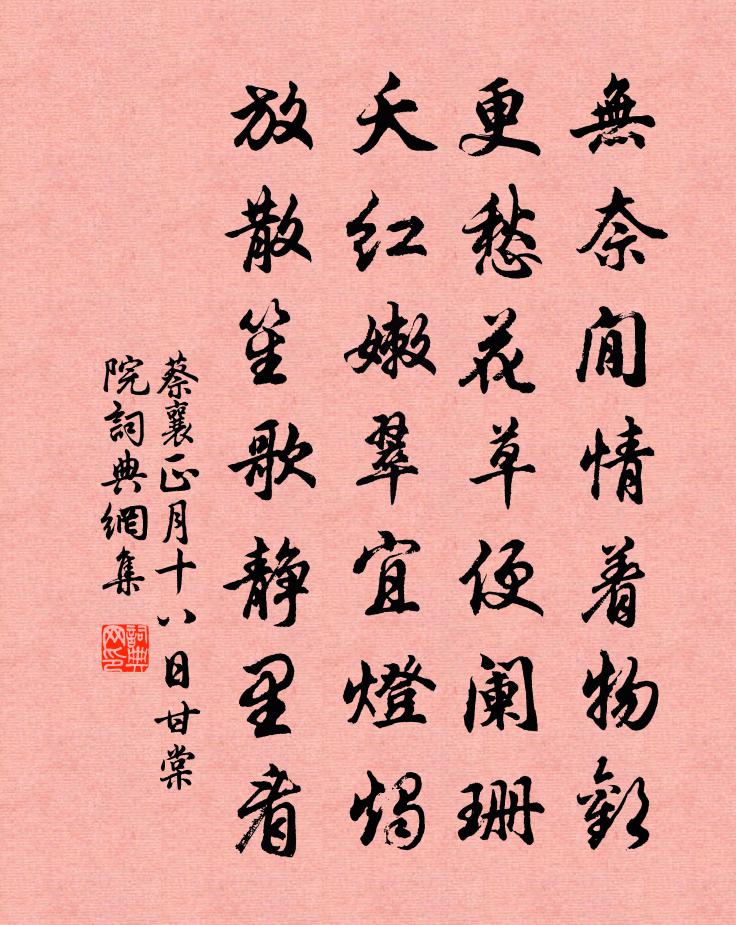 無奈閒情着物歡
更愁花草便闌珊
夭紅嫩翠宜燈燭
放散笙歌静里看
蔡襄正月十八日甘棠
院詞典網集
詞典
网印